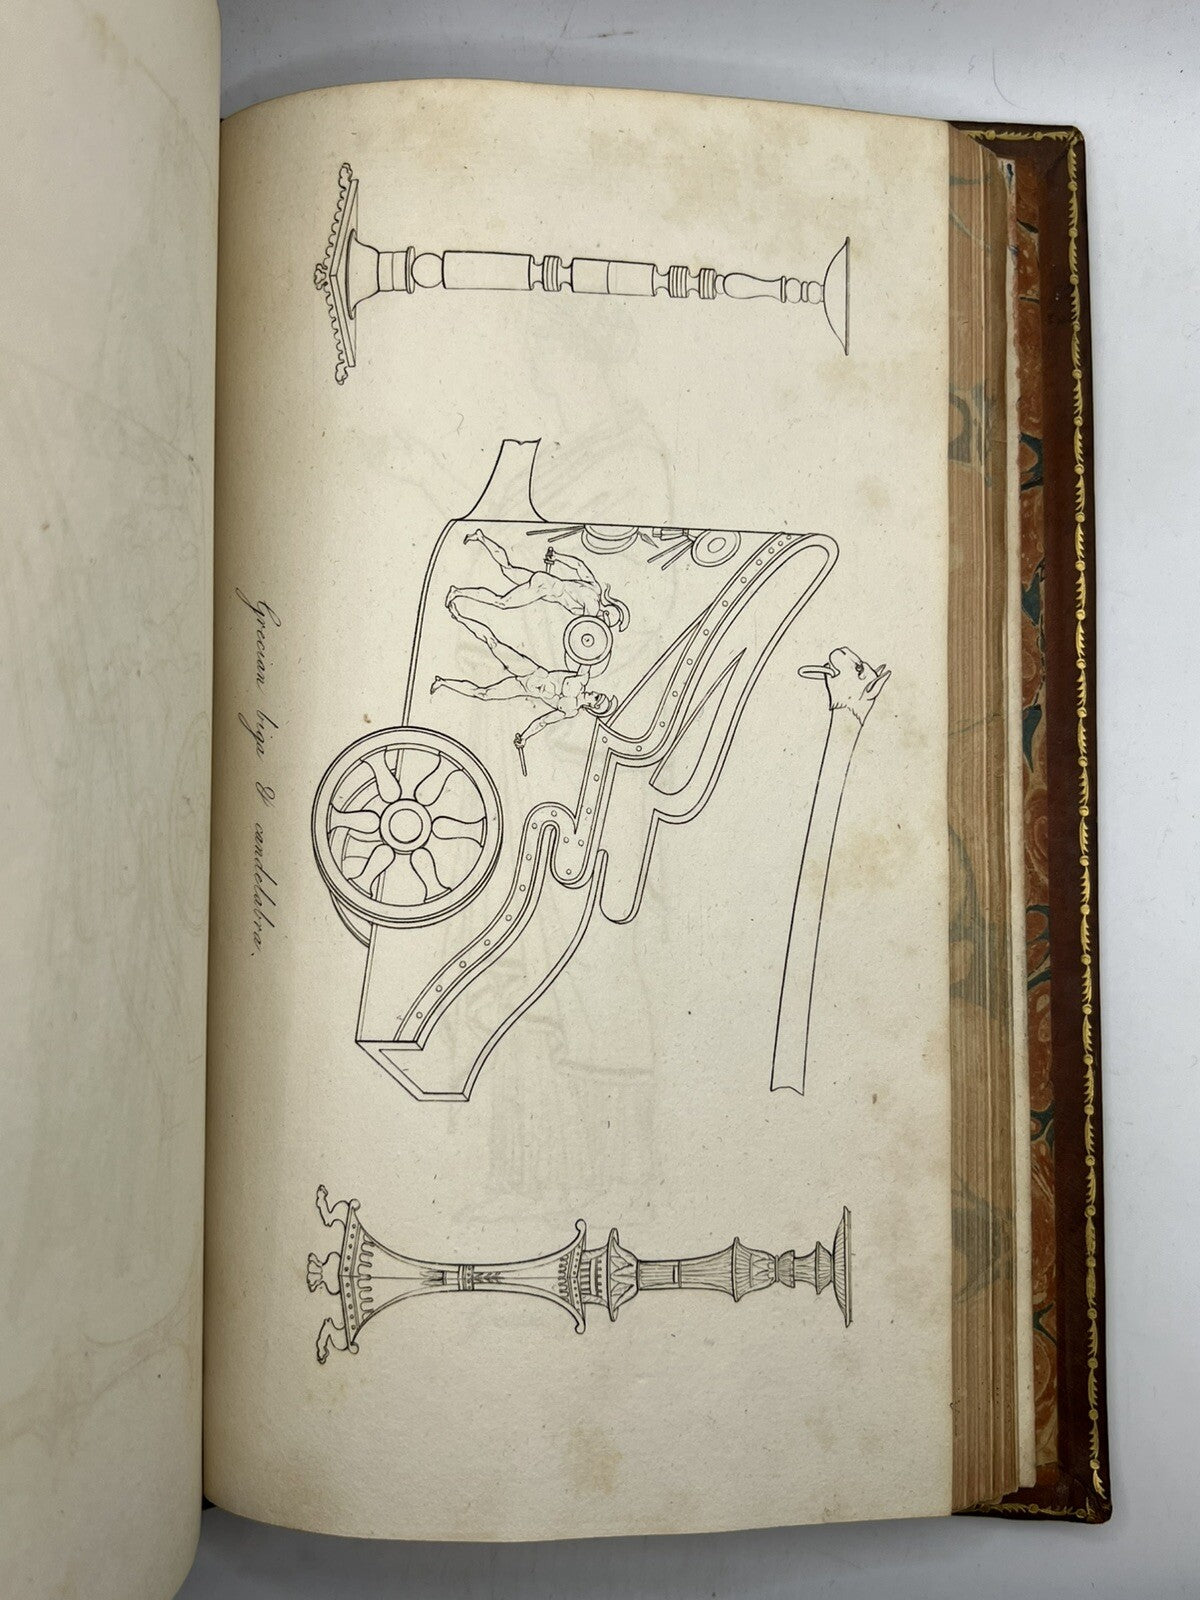 Grecian biga & candelabra.